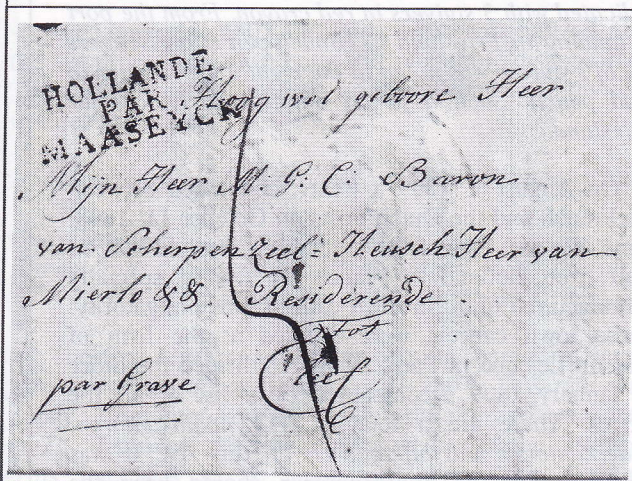 HOLLANDE
PAR
MAASEYCK
Hoog wel geboore Heer
Mijn Heer M. G. C. Baron
van Scherpenzeel= Heusch Heer van
Mierlo &&. Residerende.
Tot
par Grave